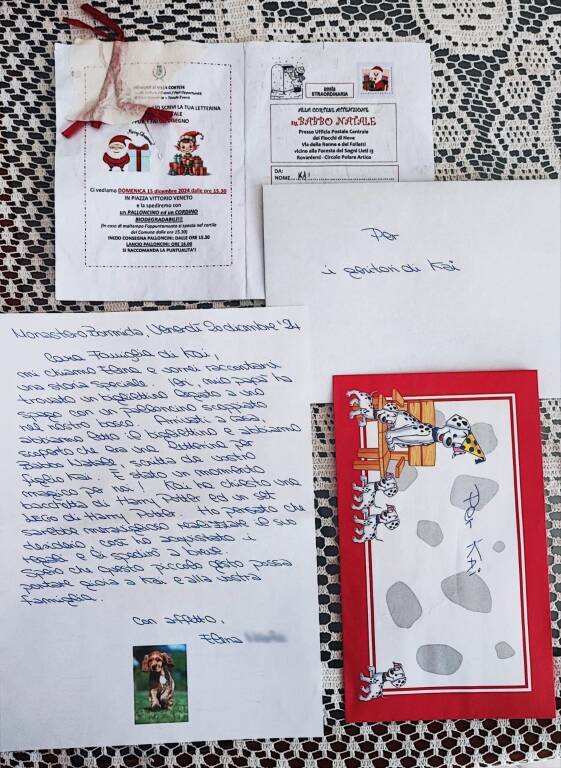 SCRIVI LA TUA LETTERINA
Merry Christmas
Ci vediamo DOMENICA 15 dicembre 2024 dalle ore 15.30
IN PIAZZA VITTORIO VENETO
e la spediremo con
un PALLONCINO ed un CORDINO
BIODEGRADABILI!!!
(in caso di maltempo l'appuntamento si sposta nel cortile
del Comune dalle ore 15.30)
INIZIO CONSEGNA PALLONCINI: DALLE ORE 15.30
LANCIO PALLONCINI: ORE 16.00
SI RACCOMANDA LA PUNTUALITA'!
posta
STRAORDINARIA
ALLA CORTESE ATTENZIONE
DI BABBO NATALE
Presso Ufficio Postale Centrale
dei Fiocchi di Neve
Via delle Renne e dei Folletti
vicino alla Foresta dei Sogni Lieti
Rovaniemi - Circolo Polare Artico
DA:
NOME KAI
Per
i genitori di Kai
Monastero Bormida, Venerdì 20 dicembre '24
Cara Famiglia di Kai,
mi chiamo Elena e vorrei raccontarvi
una storia speciale. Ieri, mio papà ha
trovato un bigliettino legato a uno
spago con un palloncino scoppiato
nel nostro bosco. Arrivati a casa
abbiamo letto il bigliettino e abbiamo
scoperto che era una letterina per
Babbo Natale, scritta da vostro
figlio Kai. È stato un momento
magico per noi! Kai ha chiesto una
bacchetta di Harry Potter ed un set
LEGO di Harry Potter. Ho pensato che
sarebbe meraviglioso realizzare il suo
desiderio così ho acquistato i
regali e li spedirò a breve.
Spero che questo piccolo gesto possa
portare gioia a Kai e alla vostra
famiglia.
Con affetto,
Elena
Per Kai